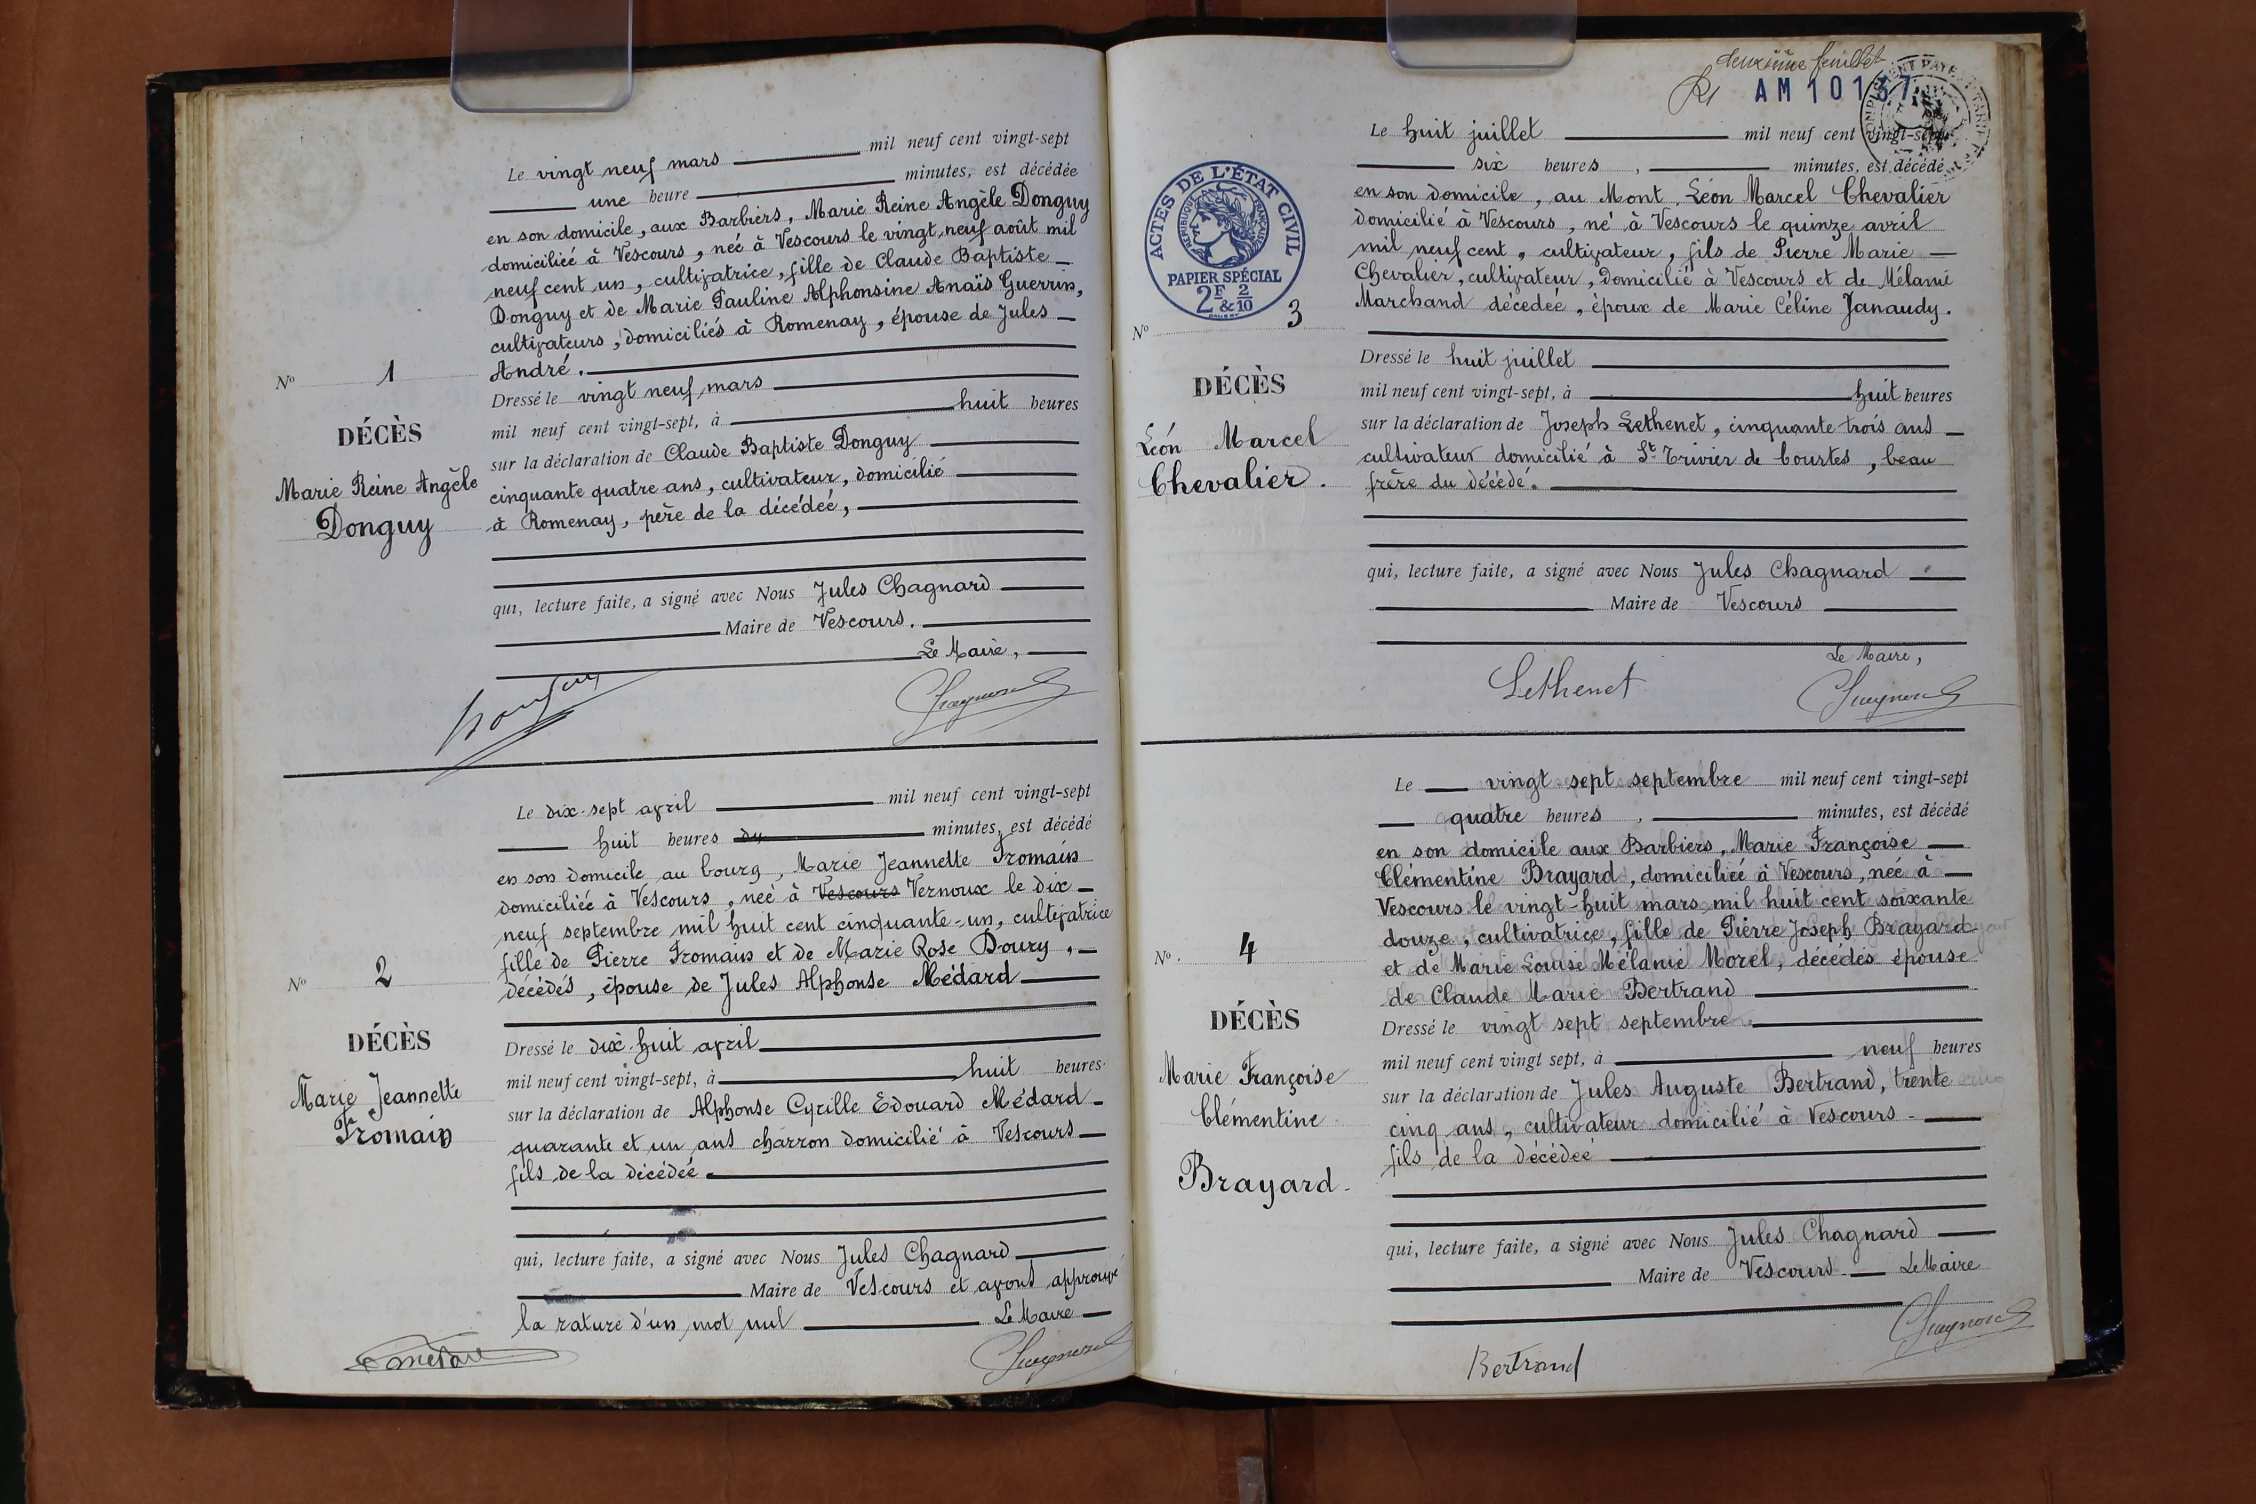 Le vingt neuf mars mil neuf cent vingt-sept
une heure minutes, est décédée
en son domicile, aux Barbiers, Marie Reine Angèle Donguy
domiciliée à Vescours, née à Vescours le vingt neuf août mil
neuf cent un, cultivatrice, fille de Claude Baptiste
Donguy et de Marie Pauline Alphonsine Anaïs Guerrin,
cultivateurs, domiciliés à Romenay, épouse de Jules
André.
Nº 1
DÉCÈS
Marie Reine Angèle
Donguy
Dressé le vingt neuf mars
mil neuf cent vingt-sept, à huit heures
sur la déclaration de Claude Baptiste Donguy
cinquante quatre ans, cultivateur, domicilié
à Romenay, père de la décédée,
qui, lecture faite, a signé avec Nous Jules Chagnard
Maire de Vescours.
Le Maire,
Donguy
Chagnard
Le dix-sept avril mil neuf cent vingt-sept
huit heures minutes, est décédé
en son domicile au bourg, Marie Jeannette Fromain
domiciliée à Vescours, née à Vescours Vernoux le dix
neuf septembre mil huit cent cinquante-un, cultivatrice
fille de Pierre Fromain et de Marie Rose Doury,
décédés, épouse de Jules Alphonse Médard
Nº 2
DÉCÈS
Marie Jeannette
Fromain
Dressé le dix-huit avril
mil neuf cent vingt-sept, à huit heures
sur la déclaration de Alphonse Cyrille Edouard Médard
quarante et un ans charron domicilié à Vescours
fils de la décédée
qui, lecture faite, a signé avec Nous Jules Chagnard
Maire de Vescours et avons approuvé
la rature d'un mot nul Le Maire
Chagnard
deuxième feuillet
AM 10137
ACTES DE L'ÉTAT CIVIL
RÉPUBLIQUE FRANÇAISE
PAPIER SPÉCIAL
2F & 2/10
Le huit juillet mil neuf cent vingt-sept
six heures, minutes, est décédé
en son domicile, au Mont, Léon Marcel Chevalier
domicilié à Vescours, né à Vescours le quinze avril
mil neuf cent, cultivateur, fils de Pierre Marie
Chevalier, cultivateur, domicilié à Vescours et de Mélanie
Marchand décédée, époux de Marie Céline Janaudy.
Nº 3
DÉCÈS
Léon Marcel
Chevalier.
Dressé le huit juillet
mil neuf cent vingt-sept, à huit heures
sur la déclaration de Joseph Lethenet, cinquante trois ans
cultivateur domicilié à St Trivier de Courtes, beau
frère du décédé.
qui, lecture faite, a signé avec Nous Jules Chagnard
Maire de Vescours
Le Maire,
Lethenet
Chagnard
Le vingt sept septembre mil neuf cent vingt-sept
quatre heures, minutes, est décédé
en son domicile aux Barbiers, Marie Françoise
Clémentine Brayard, domiciliée à Vescours, née à
Vescours le vingt-huit mars mil huit cent soixante
douze, cultivatrice, fille de Pierre Joseph Brayard
et de Marie Louise Mélanie Morel, décédés épouse
de Claude Marie Bertrand
Nº 4
DÉCÈS
Marie Françoise
Clémentine
Brayard
Dressé le vingt sept septembre
mil neuf cent vingt sept, à neuf heures
sur la déclaration de Jules Auguste Bertrand, trente
cinq ans, cultivateur domicilié à Vescours
fils de la décédée
qui, lecture faite, a signé avec Nous Jules Chagnard
Maire de Vescours Le Maire
Chagnard
Bertrand